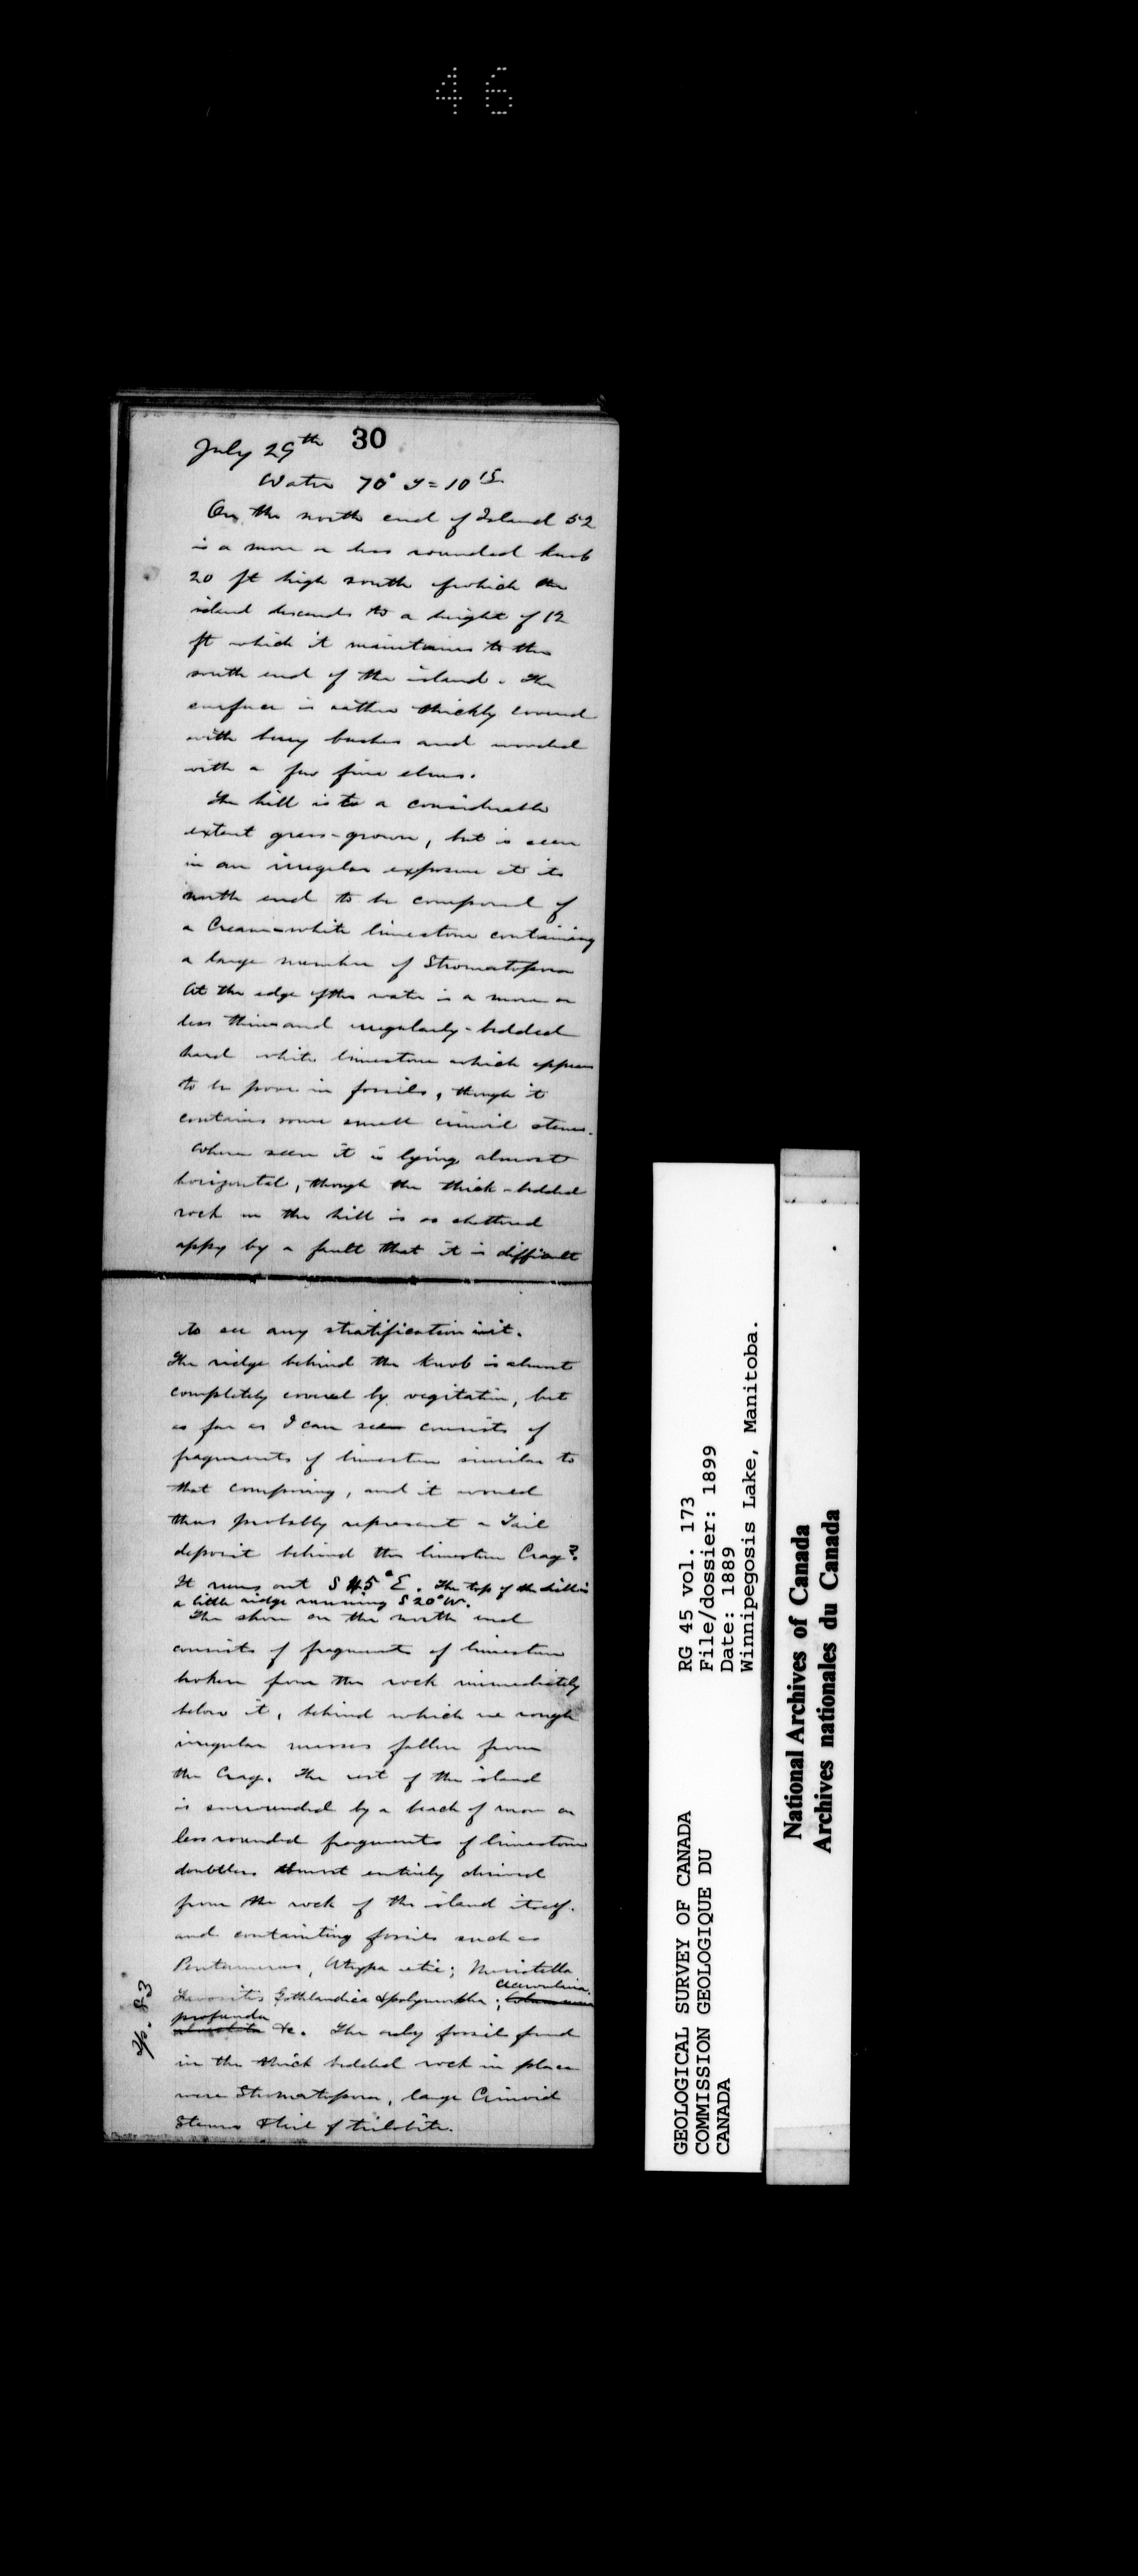 46
July 29th 30
Water 70°
On the north end of Island 52
is a more or less rounded knob
20 ft high south of which the
island descends to a height of 12
ft which it maintains to the
south end of the island. The
surface is rather thickly covered
with berry bushes and wooded
with a few fine elms.
The hill is to a considerable
extent grass-grown, but is seen
in an irregular exposure at its
north end to be composed of
a Cream-white limestone containing
a large number of Stromatopora
At the edge of the water is a more or
less thin and irregularly-bedded
hard white limestone which appears
to be poor in fossils, though it
contains some small crinoid stems.
Where seen it is lying almost
horizontal, though the thick-bedded
rock in the hill is so shattered
appy by a fault that it is difficult
to see any stratification in it.
The ridge behind the knob is almost
completely covered by vegitation, but
as far as I can see consists of
fragments of limestone similar to
that composing, and it would
thus probably represent a Tail
deposit behind the limestone Crag?
It runs out S 45° E. The top of the hill is
a little ridge running S 20° W.
The shore on the north end
consists of fragments of limestone
broken from the rock immediately
below it, behind which are rough
irregular masses fallen from
the Crag. The rest of the island
is surrounded by a beach of more or
less rounded fragments of limestone
doubtless almost entirely derived
from the rock of the island itself.
and containing fossils such as
Pentamerus, Atrypa retic; Meristella
Favosites Gothlandica & polymorpha;
profunda
&c. The only fossil found
in the thick bedded rock in place
were Stromatopora, large Crinoid
Stems & tail of trilobite.
p. 83
GEOLOGICAL SURVEY OF CANADA
COMMISSION GEOLOGIQUE DU
CANADA
RG 45 vol. 173
File/dossier: 1899
Date: 1889
Winnipegosis Lake, Manitoba.
National Archives of Canada
Archives nationales du Canada